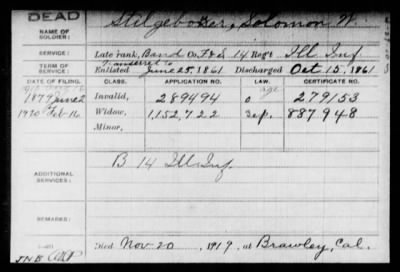 DEAD
NAME OF SOLDIER: Stilgebouer, Solomon W.
SERVICE: Late rank, Band Co. F&S, 14 Reg't Ill Inf.
TERM OF SERVICE: Transferred to
Enlisted June 25, 1861 Discharged Oct 15, 1861
DATE OF FILING. CLASS. APPLICATION NO. CERTIFICATE NO.
1879 June 2 Invalid, 289494 279153
1920 Feb 16 Widow, 1,152,722 887948
Minor,
ADDITIONAL SERVICES: B 14 Ill Inf
REMARKS:
Died Nov. 20, 1919, at Brawley, Cal.